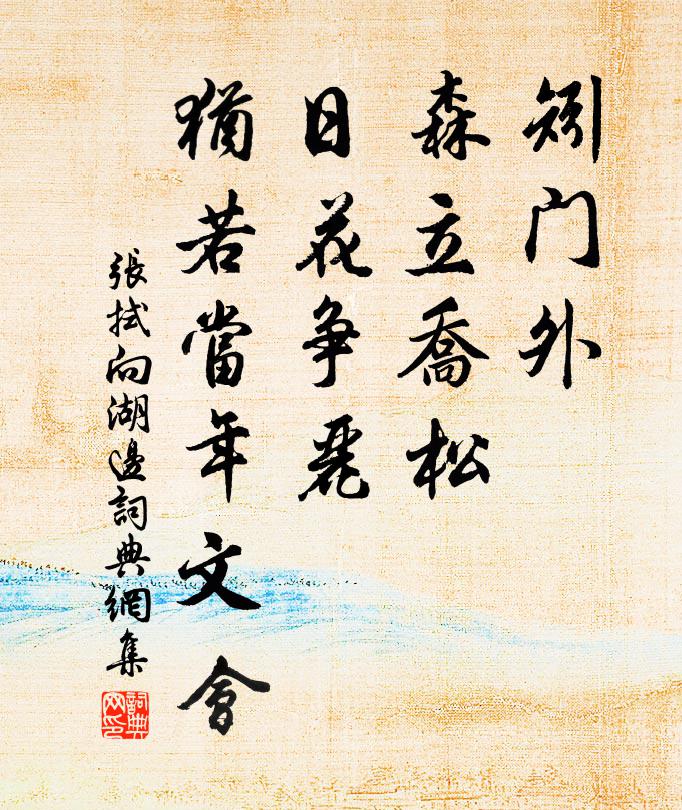 矧门外
森立喬松
日花争麗
猶若當年文會
張拭向湖邊詞典網集
詞典网印